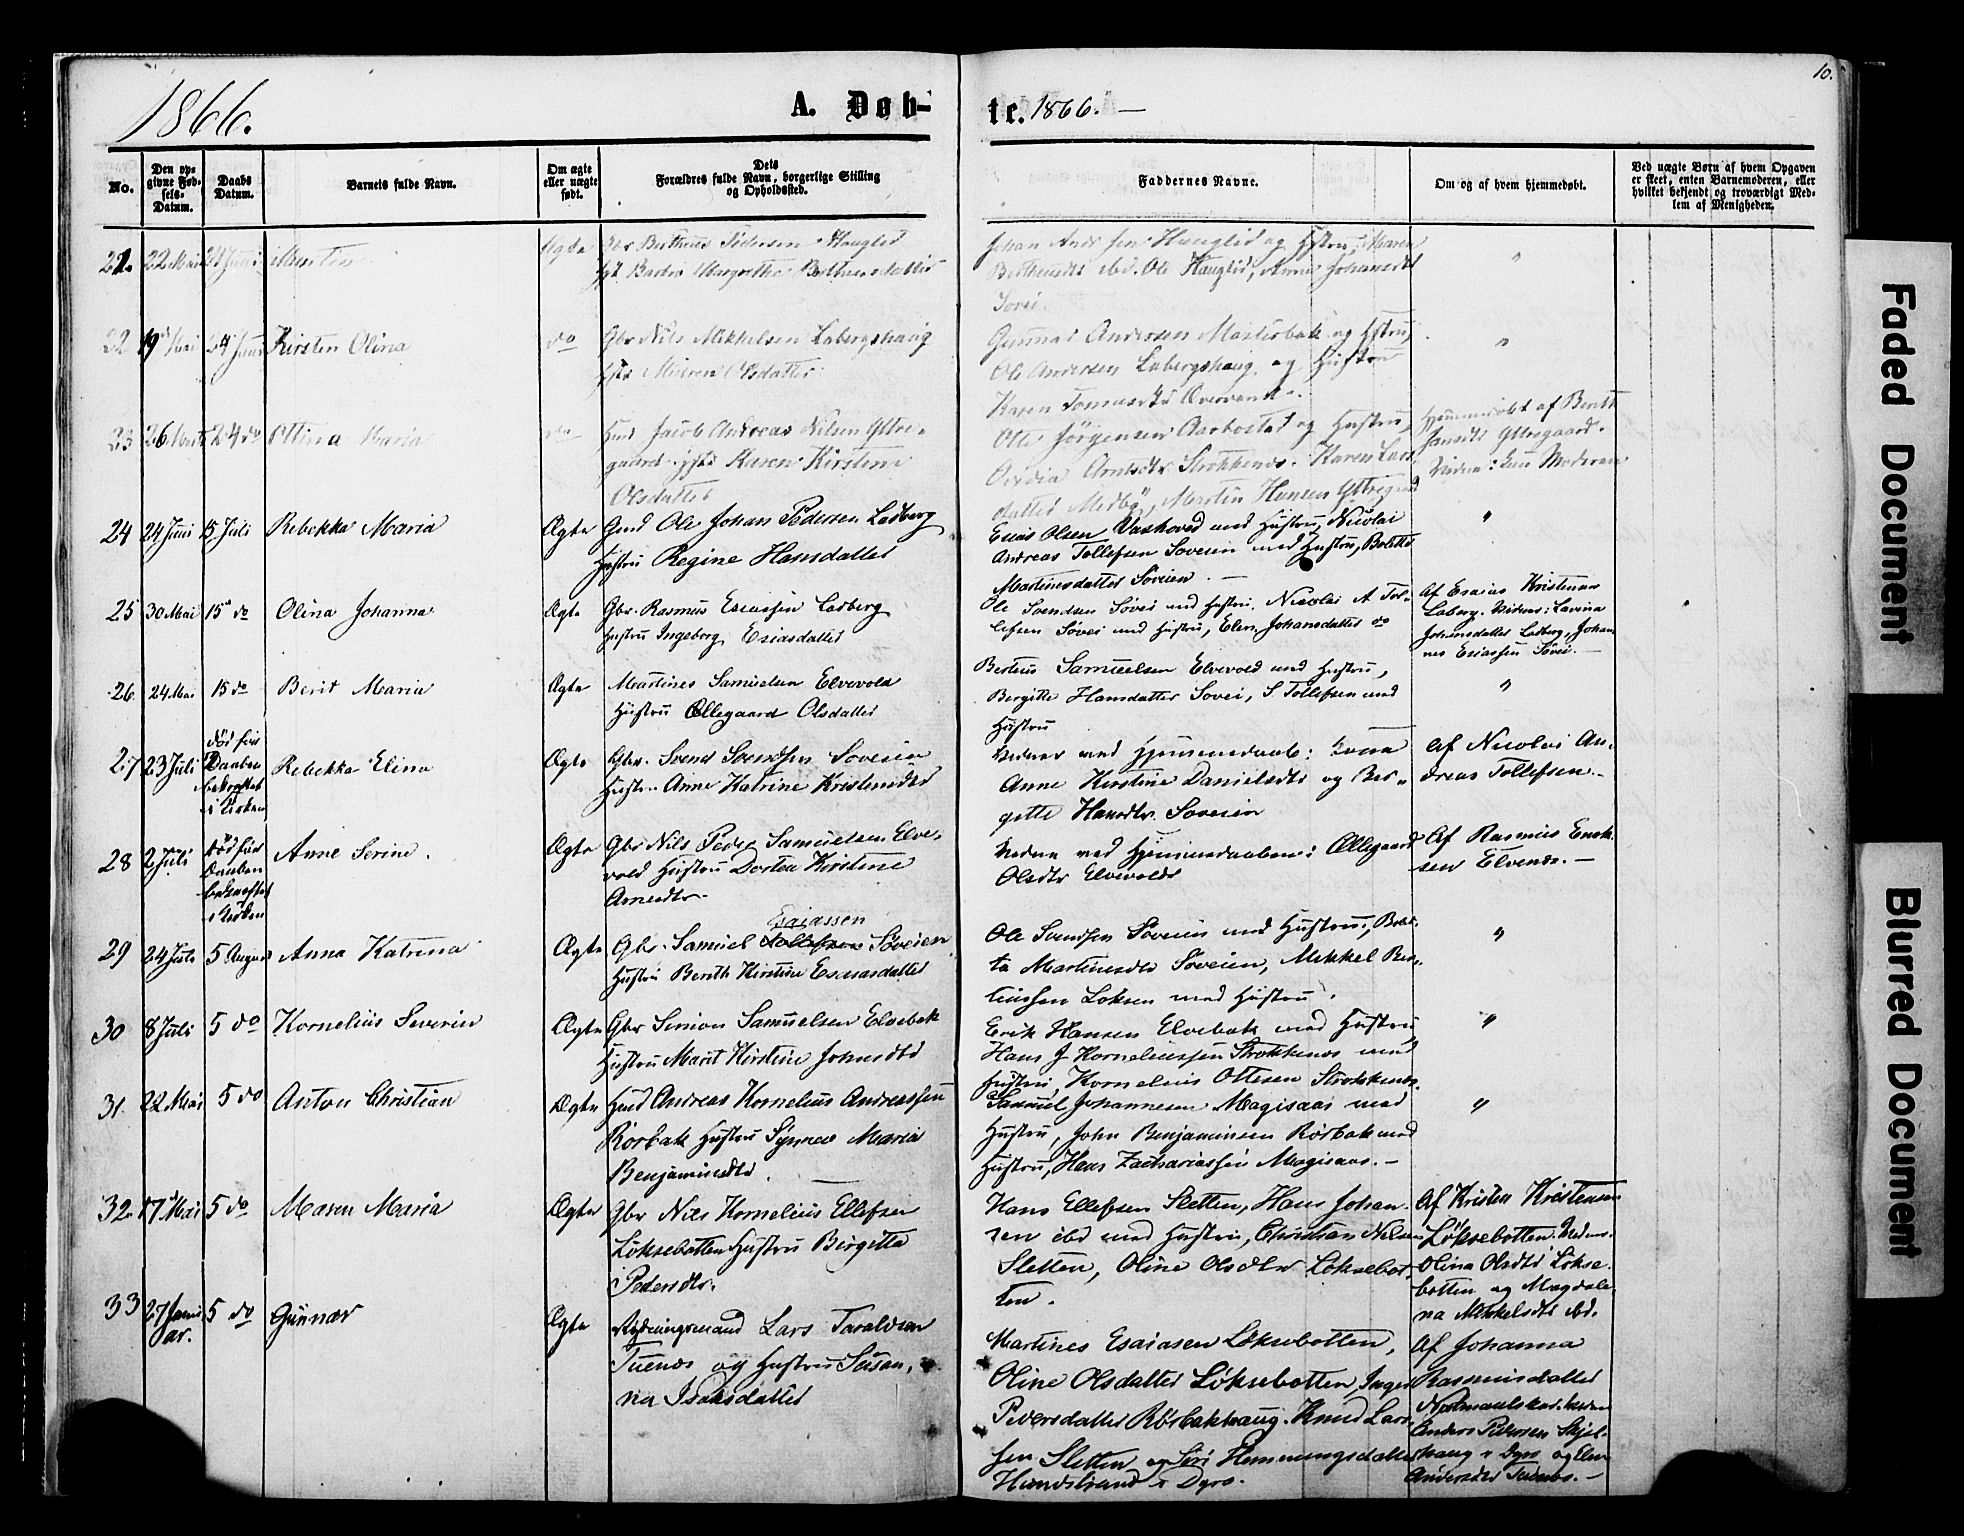 1866.
A. Døb-
te. 1866. —
10.
No.
Den op-
givne Fød-
sels-
Datum.
Daabs
Datum.
Barnets fulde Navn.
Om ægte
eller uægte
født.
Dets
Forældres fulde Navn, borgerlige Stilling
og Opholdssted.
Faddernes Navne.
Om og af hvem hjemmedøbt.
Ved uægte Børn af hvem Opgaven
er skeet, enten Barnemoderen, eller
hvilket bekjendt og troværdigt Med-
lem af Menigheden.
21. 22 Mai 24 Juni
Ægte Pedersen Hauglid
Margrethe
Johan Hauglid og Hstru, Maren
ibd. Ole Hauglid, Anne Johansdtr
Sovei.
"
22 19 Mai 24 Juni Kirsten Olina
do Gbr Nils Mikkelsen Labergshaug
Hstr Maren Olsdatter
Gunnar Andersen og Hstru,
Ole Andersen Labergshaug og Hustru
Karen
"
23 26 24 do Ottina Maria
do Jacob Andreas Nilsen Yttre-
gaard Karen Kirstine
Olsdatter
Otte Jörgensen Aarbostad og Hustru,
Arntsdtr Strokkenes. Karen Lars
datter Medby, Martin Hansen
Hjemmedøbt af Berith
Jansdtr Yttregaard.
Moderen
24 24 Juni 15 Juli Rebekka Maria
Ægte Ole Johan Pedersen Ladberg
Hustru Regine Hansdatter
Esias Olsen Vashoved med Hustru, Nicolai
Andreas Tollefsen Soveien med Hustru, Bolette
Martinesdatter Søveien. —
"
25 30 Mai 15 do Olina Johanna
Ægte Gbr. Rasmus Esiassen Ladberg
Hustru Ingeborg Esiasdatter
Ole Svendsen Søvei med Hustru, Nicolai A Tol-
lefsen Søvei med Hustru, Elen Johansdatter do
Af Esaias Kristensen
Laberg. Vidner: Lavina
Johansdatter Ladberg, Johan
nes Esiassen Søvei. —
26 24 Mai 15 do Berit Maria
Ægte Martines Samuelsen Elvevold
Hustru Ollegaard Olsdatter
Berteus Samuelsen Elvevold med Hustru,
Bergitte Hansdatter Sovei, S Tollefsen med
Hustru
"
27 23 Juli
død før
Daaben
bekræftet
i Kirken
Rebekka Elina
Ægte Gbr. Svend Svendsen Soveien
Hustr. Anne Katrine Kristensdtr
Vidner ved Hjemmedaab: Kona
Anne Kirstine Danielsdtr og Ber-
gitte Hansdtr. Soveien
Af Nicolai An-
dreas Tollefsen. —
28 2 Juli
død før
Daaben
bekræftet
i Kirken
Anne Serine.
Ægte Gbr Nils Peder Samuelsen Elve-
vold Hustru Dortea Kirstine
Arnesdtr.
Vidner ved Hjemmedaaben: Ollegaard
Olsdtr Elvevold
Af Rasmus Erik-
sen Elvenes. —
29 24 Juli 5 August Anna Katrina
Esaiassen
Ægte Gbr. Samuel Tollefsen Søveien
Hustru Berith Kirstine Esaiasdatter
Ole Svendsen Soveien med Hustru, Bolet-
ta Martinesdtr Søveien, Mikkel Ber-
teussen Loksen med Hustru.
"
30 8 Juli 5 do Kornelius Severin
Ægte Gbr Simon Samuelsen Elvebak
Hustru Marit Kirstine Johnsdtr
Erik Hansen Elvebak med Hustru
Hans J Korneliussen Strokkenes med
Hustru, Kornelius Ottesen Strokkenes.
"
31. 22 Mai 5 do Anton Christian
Ægte Andreas Kornelius Andreassen
Rörbak Hustru Synnev Maria
Benjaminsdtr. —
Samuel Johannesen Magisaas med
Hustru, John Benjaminsen Rörbak med
Hustru, Hans Zachariassen Magisaas. —
"
32. 17 Mai 5 do Maren Maria
Ægte Gbr Nils Kornelius Ellefsen
Løksebotten Hustru Birgitta
Pedersdtr.
Hans Ellefsen Sletten, Hans Johan-
sen ibd med Hustru, Christian Nilsen
Sletten, Oline Olsdtr Loksebot-
ten.
Af Kristen Kristensen
Løksebotten. Vidner.
Olina Olsdtr Lokse-
botten og Magdale-
na Mikkelsdtr ibd.
33 27 Janu-
ar. 5 do Gunnar
Ægte Rydningsmand Lars Taraldsen
Tuenes og Hustru Susan-
na Isaksdatter
Martines Esaiasen Løksebotten,
Oline Olsdatter Løksebotten, Inger
Pedersdatter Rørbakhaug. Knud Lars
sen Sletten og Siri Henningsdatter
Hundstrand i Dyrø.
Af Johanna
Rasmusdatter
Anders Pedersen Skjel-
haug i Dyrø og Elen
Andersdtr Tuenes. —
Faded Document
Blurred Document